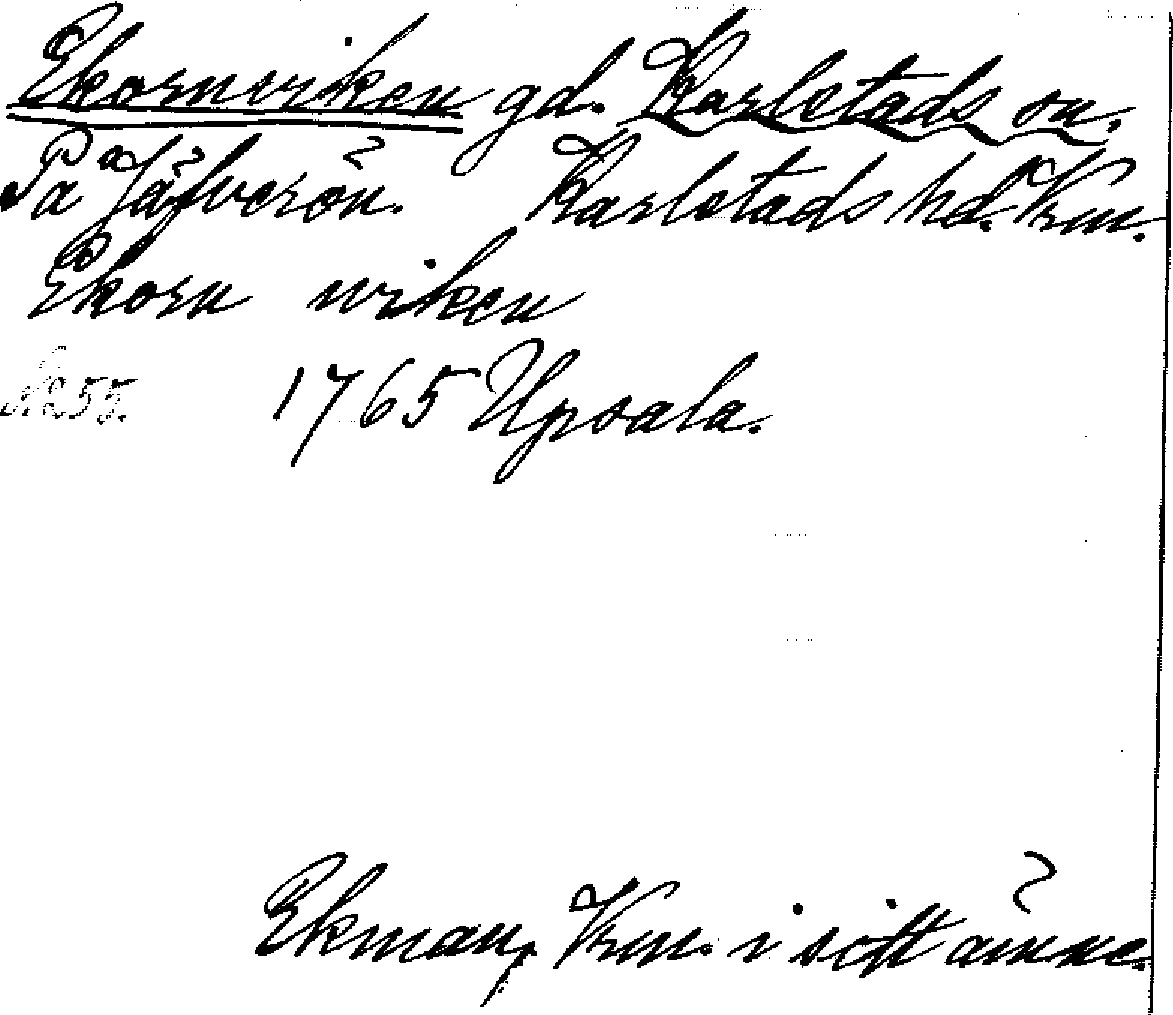 Ekornviken gd. Karlstads sn.
På Jäfverön. Karlstads hd. Vrm.
Ekorn viken
S. 255.
1765 Upsala.
Ekman, Vrm. i sitt ämne.